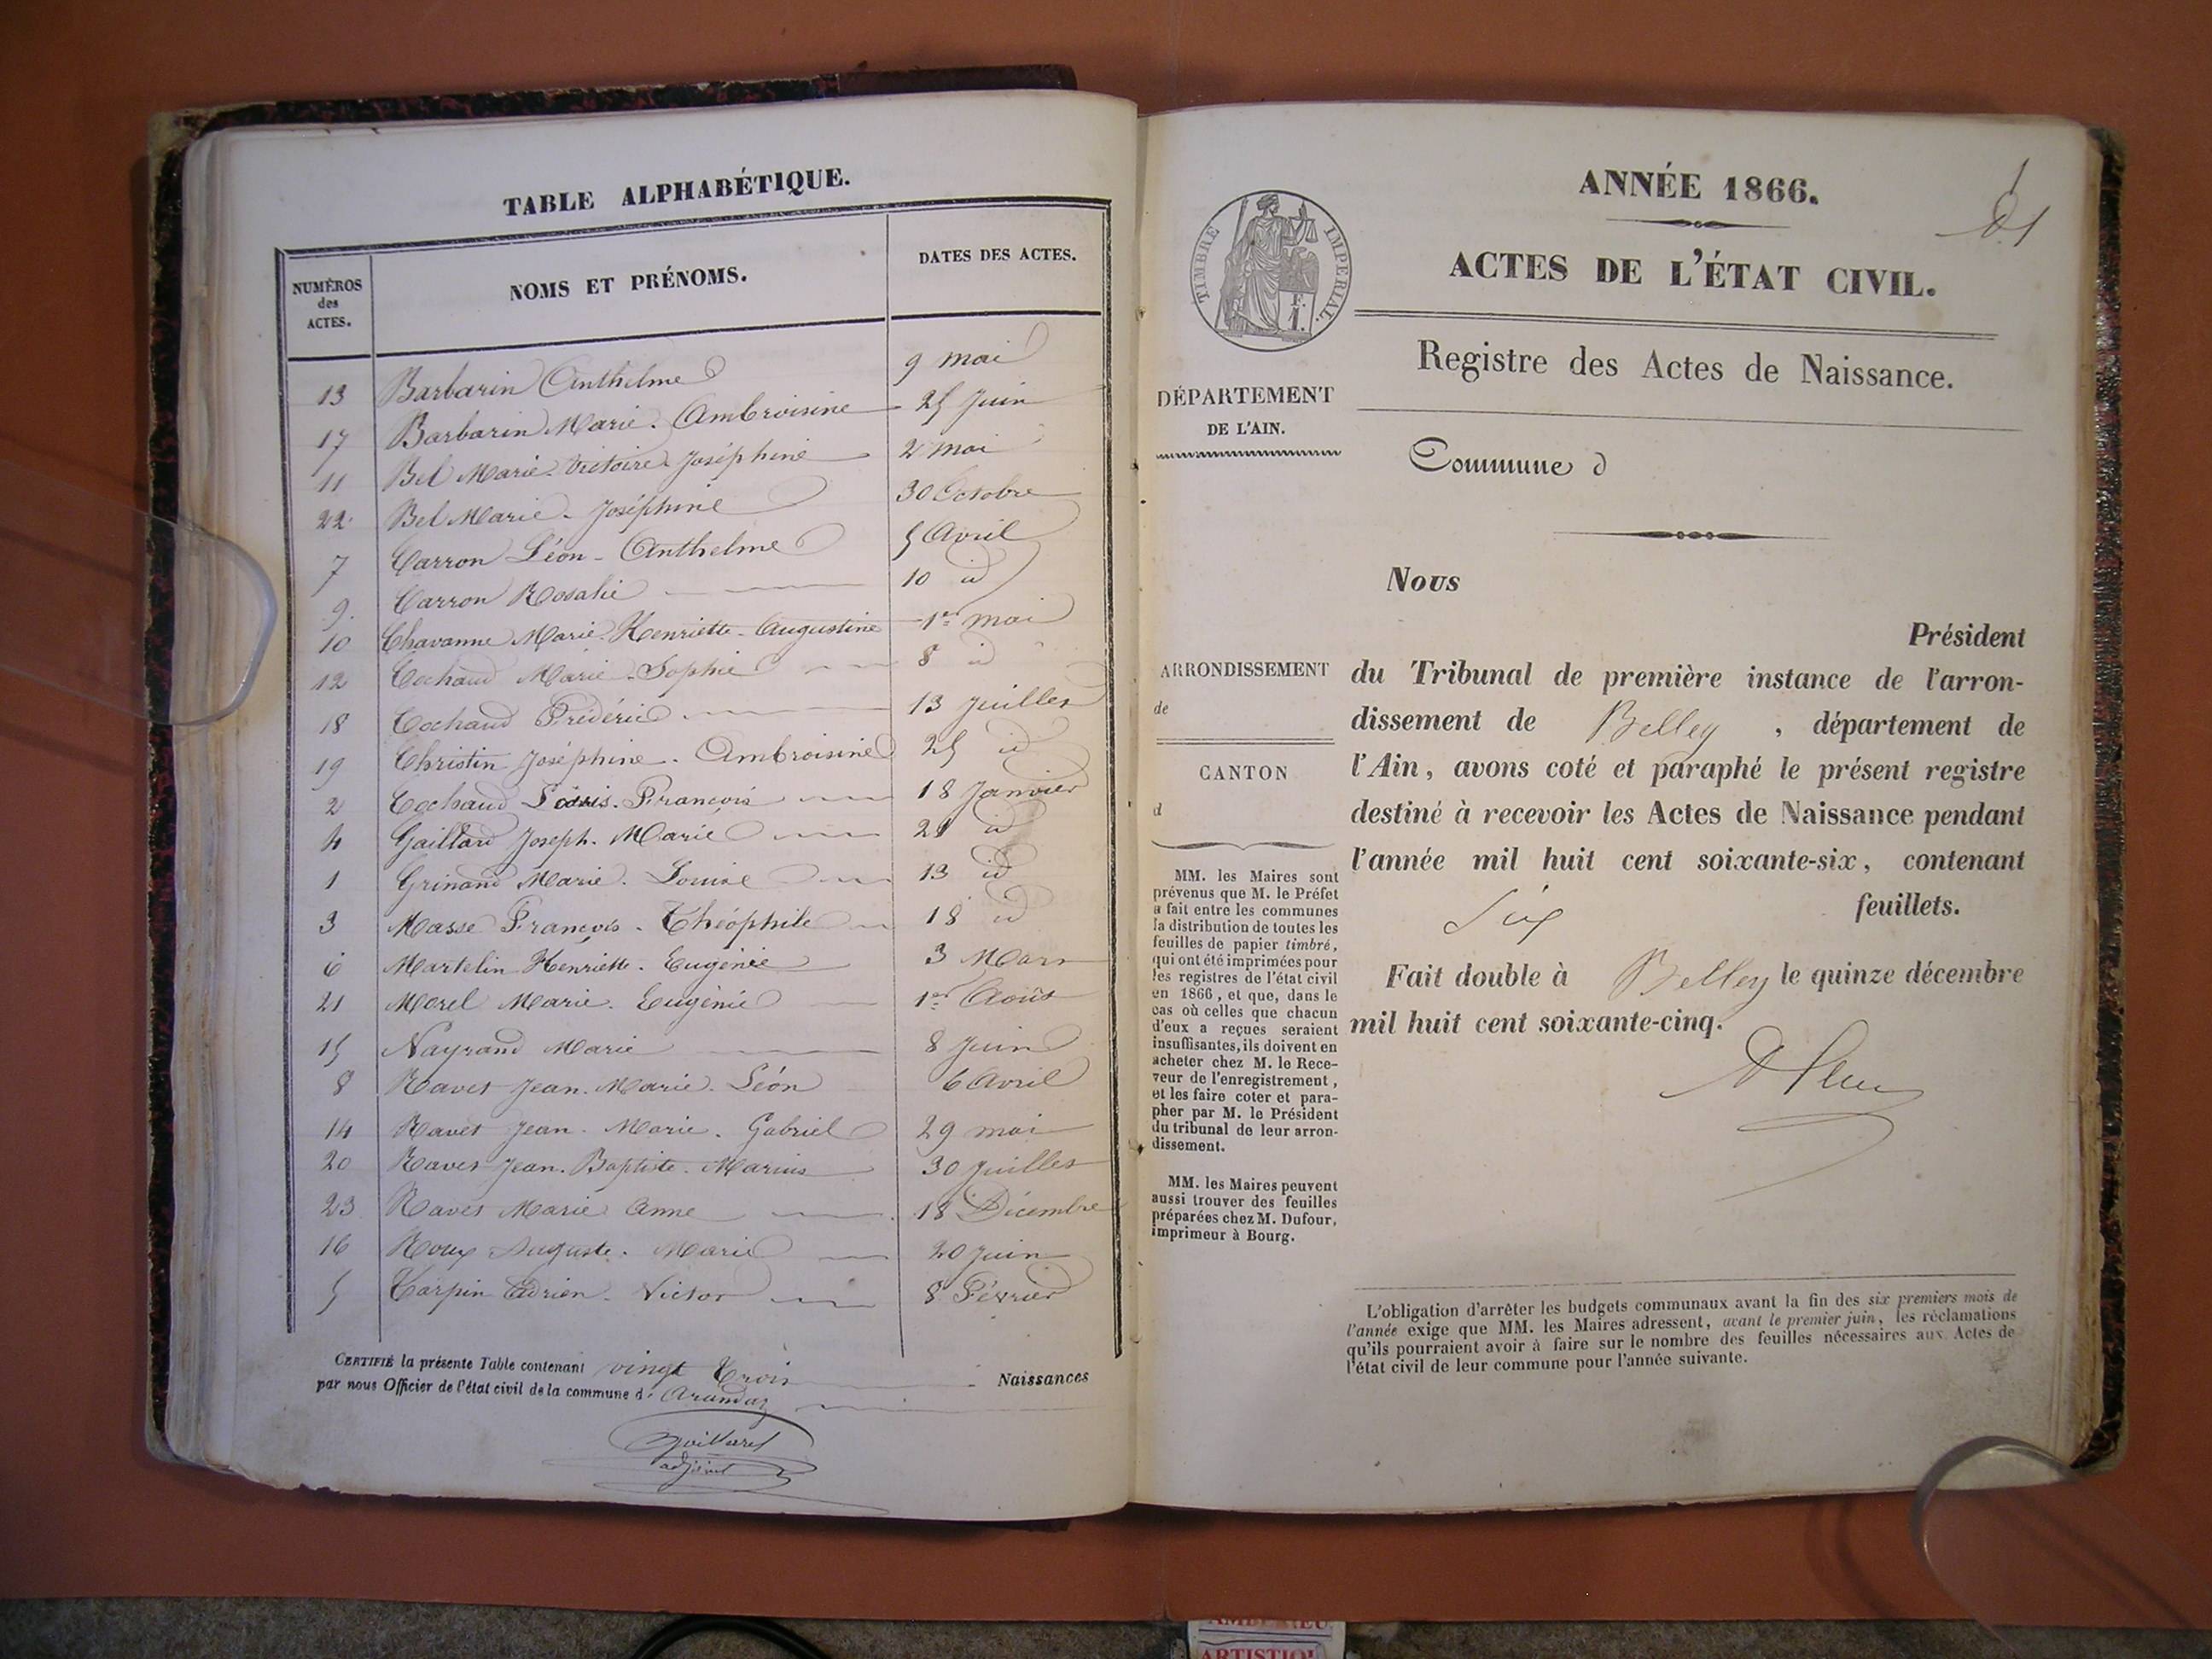 TABLE ALPHABÉTIQUE.
NUMÉROS
des
ACTES.
NOMS ET PRÉNOMS.
DATES DES ACTES.
13 Barbarin Anthelme 9 mai
17 Barbarin Marie. Ambroisine 25 Juin
11 Bel Marie. Victoire Joséphine 2 mai
22 Bel Marie. Joséphine 30 Octobre
7 Carron Léon - Anthelme 5 Avril
9. Carron Rosalie 10 id
10 Chavanne Marie. Henriette. Augustine 1er mai
12 Cochaud Marie. Sophie 8 id
18 Cochaud Frédéric 13 Juillet
19 Christin Joséphine. Ambroisine 25 id
2 Cochaud Louis. François 18 Janvier
4 Gaillard Joseph. Marie 21 id
1 Grinand Marie. Louise 13 id
3 Masse François. Théophile 18 id
6 Martelin Henriette. Eugénie 3 Mars
21 Morel Marie. Eugénie 1er Août
15 Nayrand Marie 8 Juin
8 Ravet Jean. Marie. Léon 6 Avril
14 Ravet Jean. Marie. Gabriel 29 mai
20 Ravet Jean. Baptiste. Marius 30 Juillet
23 Ravet Marie Anne 18 Décembre
16 Roux Auguste. Marie 20 Juin
5 Tarpin Adrien. Victor 8 Février
CERTIFIÉ la présente Table contenant vingt trois Naissances
par nous Officier de l'état civil de la commune d' Arandaz
adjoint
ANNÉE 1866.
TIMBRE IMPERIAL.
ACTES DE L'ÉTAT CIVIL.
Registre des Actes de Naissance.
DÉPARTEMENT
DE L'AIN.
Commune d
Nous
Président
ARRONDISSEMENT
de
CANTON
d
du Tribunal de première instance de l'arron-
dissement de Belley , département de
l'Ain, avons coté et paraphé le présent registre
destiné à recevoir les Actes de Naissance pendant
l'année mil huit cent soixante-six, contenant
Six feuillets.
Fait double à Belley le quinze décembre
mil huit cent soixante-cinq.
MM. les Maires sont
prévenus que M. le Préfet
a fait entre les communes
la distribution de toutes les
feuilles de papier timbré,
qui ont été imprimées pour
les registres de l'état civil
en 1866, et que, dans le
cas où celles que chacun
d'eux a reçues seraient
insuffisantes, ils doivent en
acheter chez M. le Rece-
veur de l'enregistrement,
et les faire coter et para-
pher par M. le Président
du tribunal de leur arron-
dissement.
MM. les Maires peuvent
aussi trouver des feuilles
préparées chez M. Dufour,
imprimeur à Bourg.
L'obligation d'arrêter les budgets communaux avant la fin des six premiers mois de
l'année exige que MM. les Maires adressent, avant le premier juin, les réclamations
qu'ils pourraient avoir à faire sur le nombre des feuilles nécessaires aux Actes de
l'état civil de leur commune pour l'année suivante.